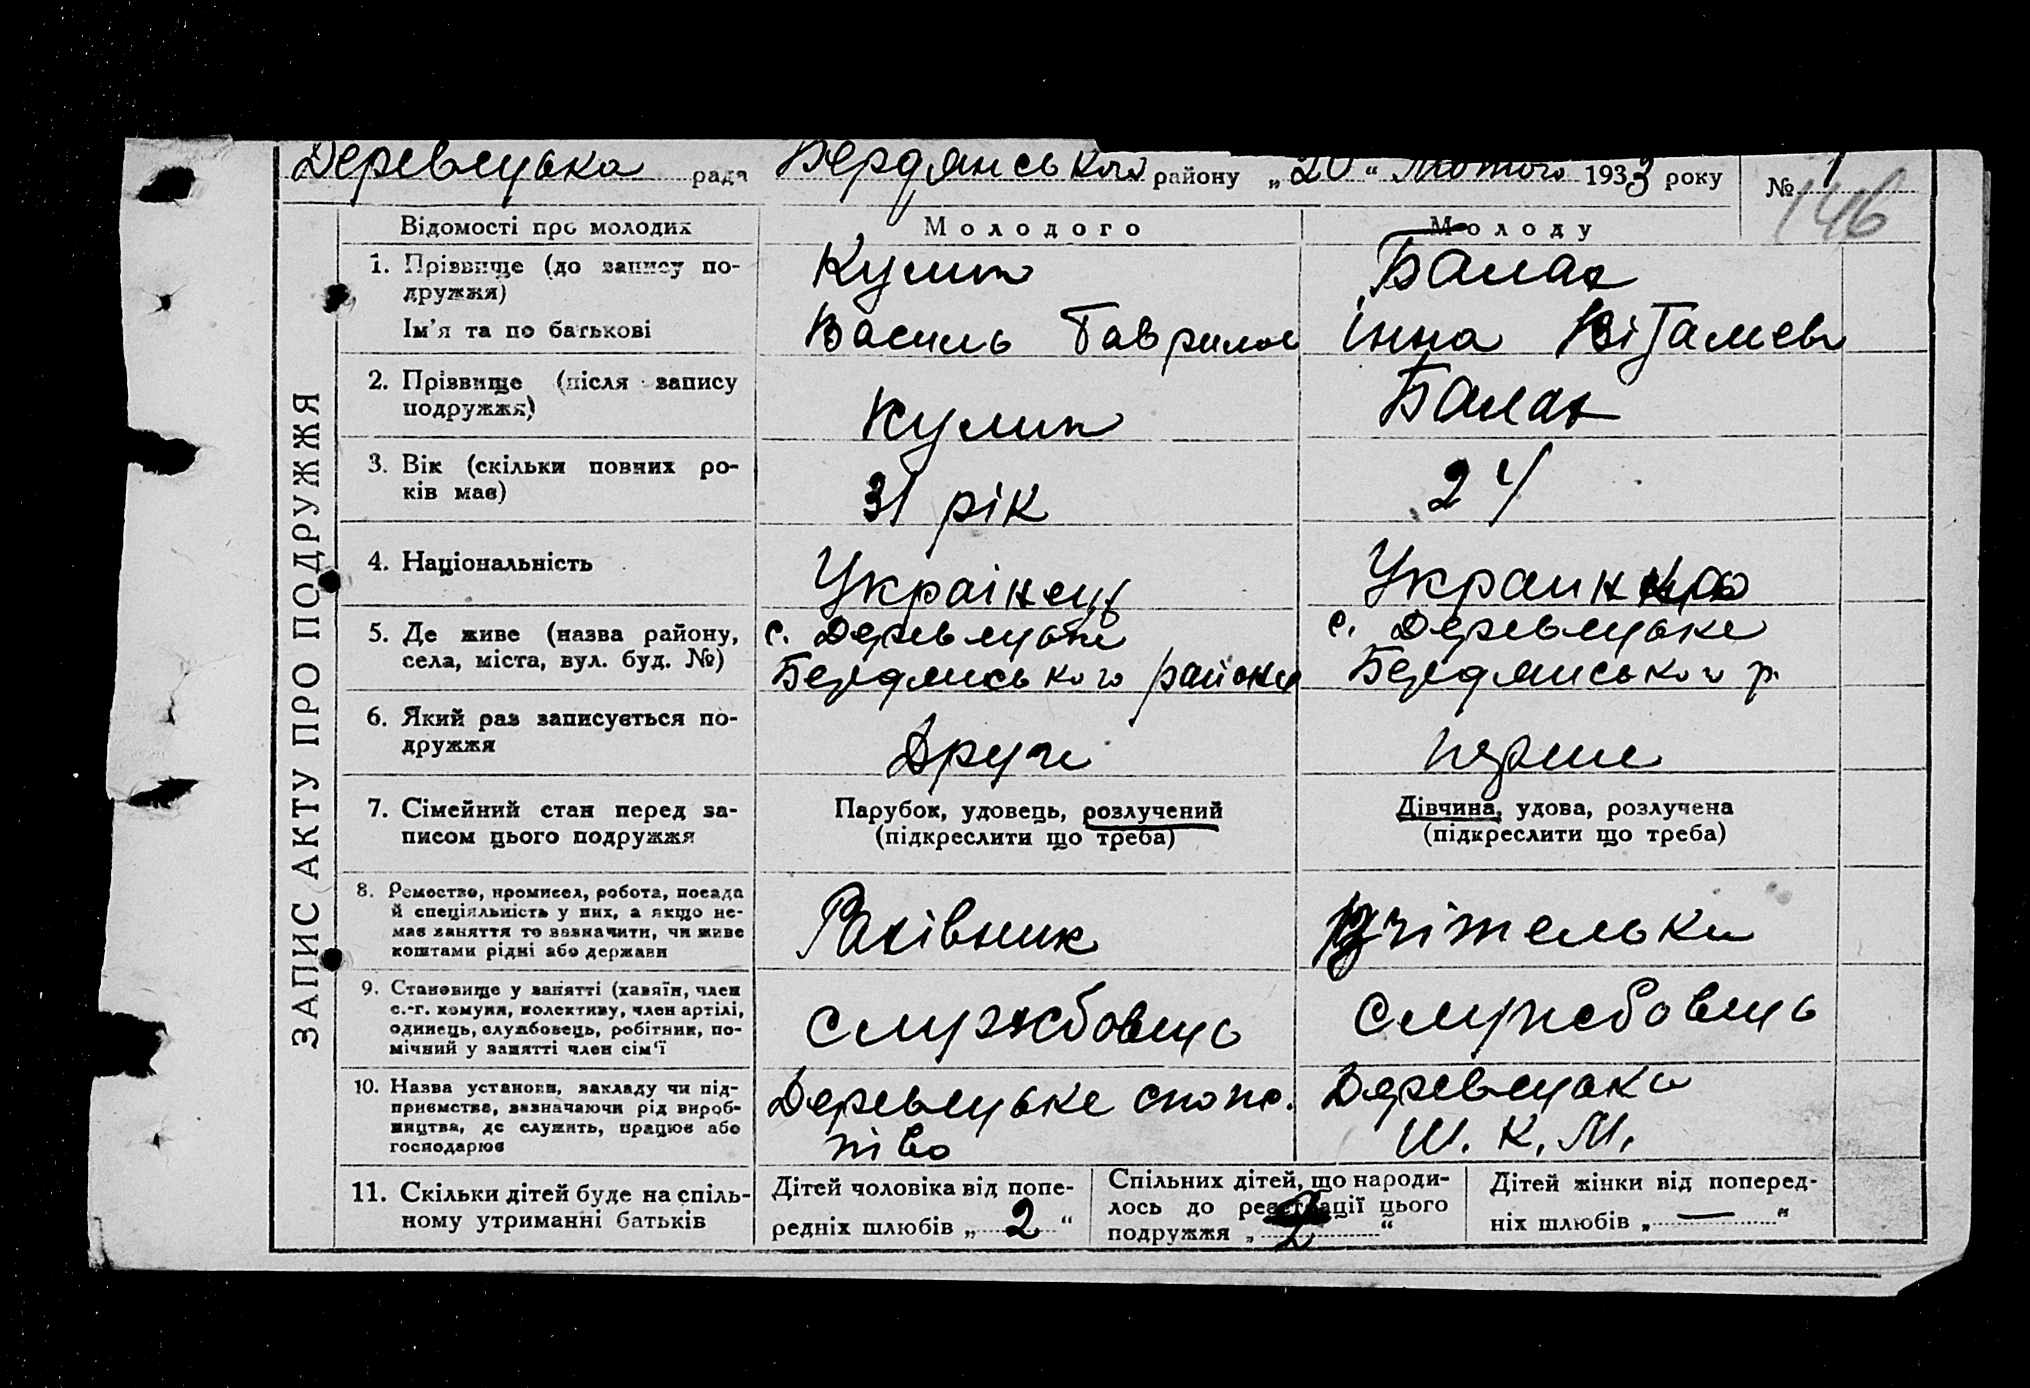 Деревецька рада Бердянського району „20“ Лютого 1933 року № 1
146
ЗАПИС АКТУ ПРО ПОДРУЖЖЯ
Відомості про молодих Молодого Молоду
1. Прізвище (до запису по-
дружжя) Кулик Балах
Ім'я та по батькові Василь Гаврилов Інна Віталиев
2. Прізвище (після запису
подружжя) Кулик Балах
3. Вік (скільки повних ро-
ків має) 31 рік 24
4. Національність Українець Украинка
5. Де живе (назва району,
села, міста, вул. буд. №)
с. Деревецьке
Бердянського району
с. Деревецьке
Бердянського р.
6. Який раз записується по-
дружжя Друге перше
7. Сімейний стан перед за-
писом цього подружжя
Парубок, удовець, розлучений
(підкреслити що треба)
Дівчина, удова, розлучена
(підкреслити що треба)
8. Ремество, промисел, робота, посада
й спеціяльність у них, а якщо не-
має заняття то зазначити, чи живе
коштами рідні або держави
Рахівник Учітелька
9. Становище у занятті (хазяїн, член
с.-г. комуни, колективу, член артілі,
одинець, службовець, робітник, по-
мічний у занятті член сім'ї
службовець службовець
10. Назва установи, закладу чи під-
приємства, зазначаючи рід вироб-
ництва, де служить, працює або
господарює
Деревецьке
тіво
Деревецька
Ш. К. М.
11. Скільки дітей буде на спіль-
ному утриманні батьків
Дітей чоловіка від попе-
редніх шлюбів „2“
Спільних дітей, що народи-
лось до реєстрації цього
подружжя „2“
Дітей жінки від поперед-
ніх шлюбів „—“